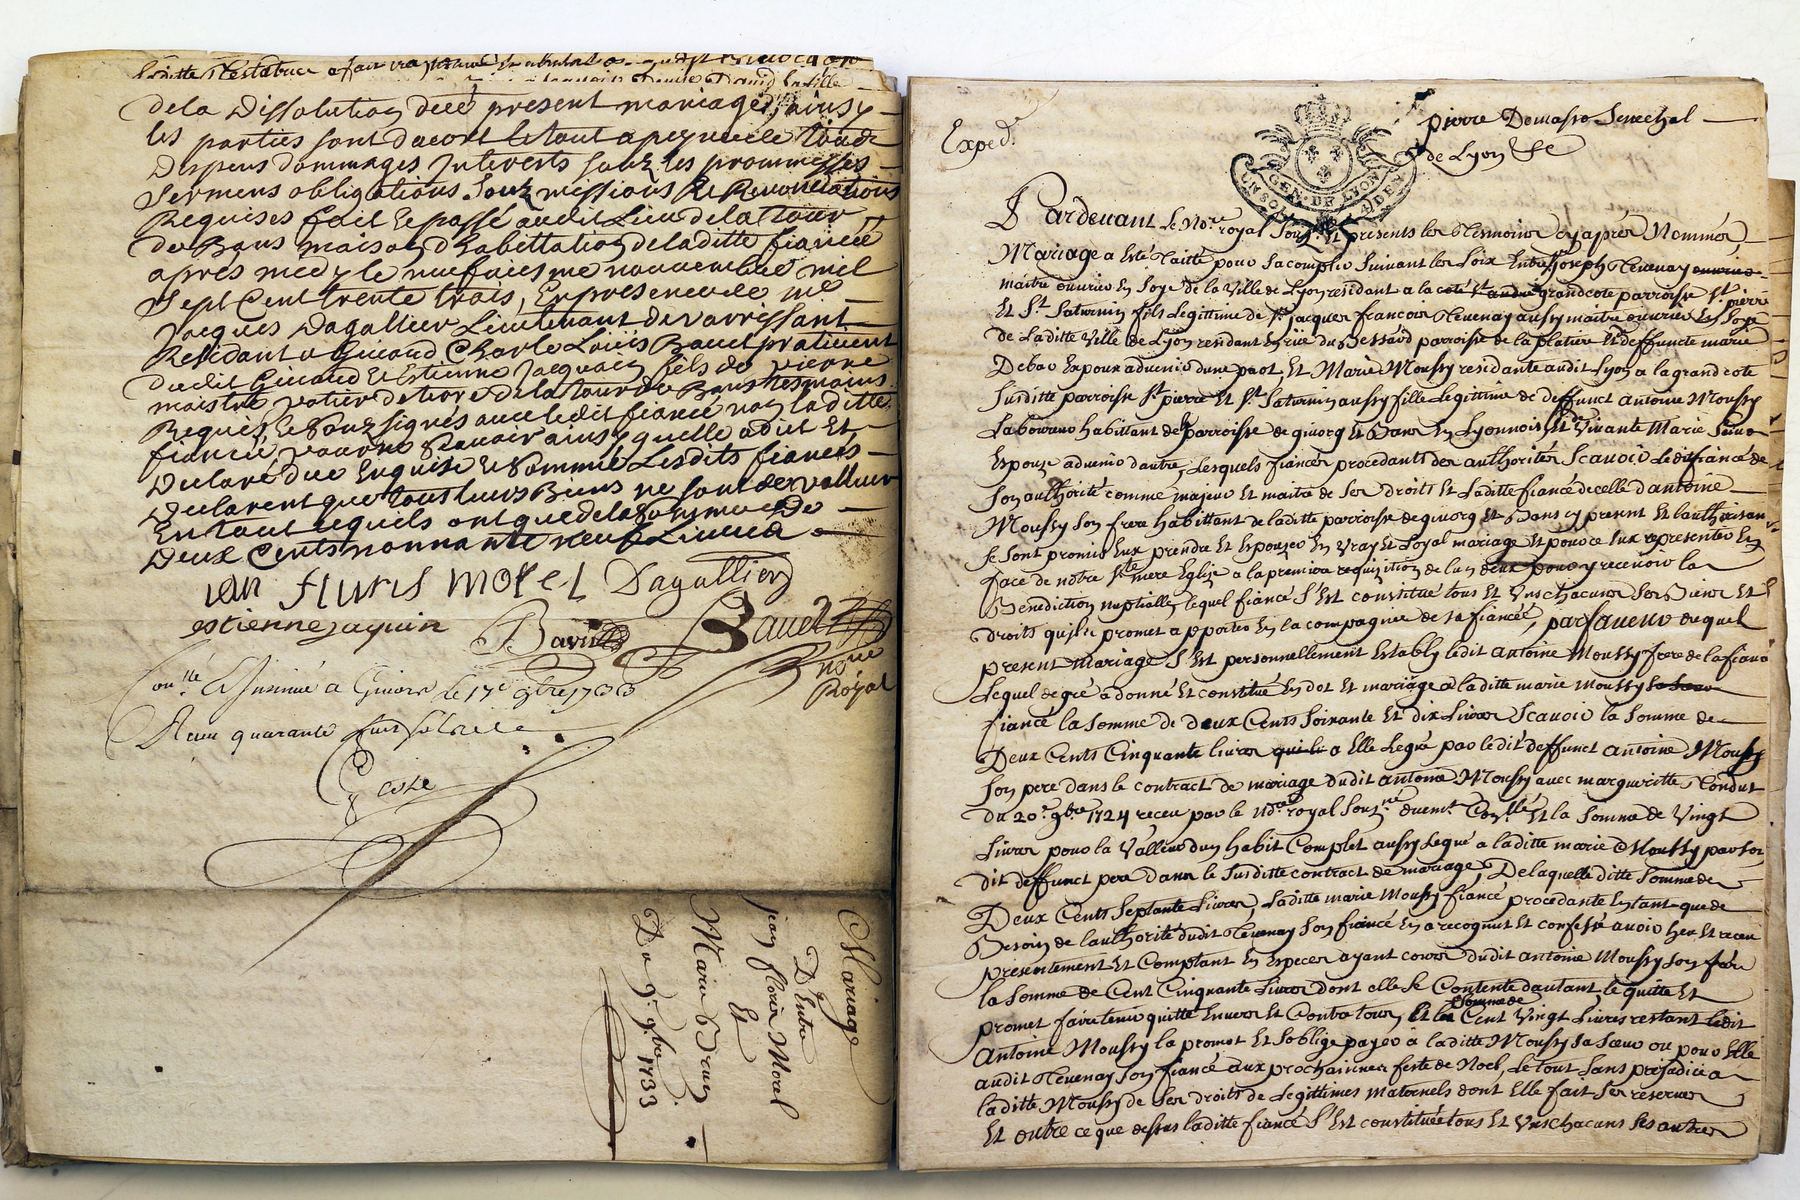 de la Dissolution dece present mariage, ainsy
les parties sont dacort le tout a peyne de tous
Despens dommages Interests soubz les prommesses
Sermens obligations Souzmissions et Renonciations
Requises fait et passé audit Lieu de la Tour
de Bans maison d'habittation de laditte fiancée
apres medy le neufviesme novembre mil
Sept Cent trente trois, En presence de me
Jacques Dagallier Lieutenant de
Residant a Givord Charle Louis Bauet praticient
dudit Givord et Estienne Jacquain fils de pierre
maistre de la Tour de Bans tesmoins
Requis et Souzsignés avec ledit fiancé non laditte
fiancée pour ne Scavoir ainsy quelle a dit et
Declaré due Enquise et Sommée Lesdits fiancés
Declarent que tous leurs Biens ne sont de valleur
En tout lequels ont que de la Somme De
Deux Cents nonnante neuf Livres
ian fluris morel Dagallier
estienne jaquin Bavet
Bauet nore Royal
Conllé & Insinué a Givors le 17e 9bre 1733
Receu quarante huit sols
Coste
Mariage
D'Entre
jean fleuris Morel
Et
Marie
Du 9e 9bre 1733
Exped.
GEN. DE LYON
UN SOL 4 DEN
pierre Demasso Senechal
de Lyon &c
Pardevant Le Nore royal Souzné Et presents les Tesmoins cy après Nommés,
Mariage a Esté Traitté pour Sacomplir Suivant les Loix Entre Joseph Thevenay ouvrier
maitre ouvrier En Soye de la Ville de Lyon residant a la coté St andré grand cote parroisse St pierre
Et St Saturnin fils Legittime de Sr jacques francois Thevenay aussy maitre ouvrier En Soye
de Laditte Ville de Lyon residant En rüe du Bessard parroisse de la platiere Et deffuncte marie
Debao Espoux advenir dune part Et Marie Moussy residante audit Lyon a la grand cote
Susditte parroisse St pierre Et St Saturnin aussy fille Legittime de deffunct Antoine Moussy
Laboureur habittant de parroisse de givorg Et Bans En Lyonnois Et de Vivante Marie
Espouze advenir dautre, Lesquels fiancés procedants des authorités Scavoir Ledit fiancé de
Son authorité comme majeur Et maitre de Ses droits Et Laditte fiancée de celle d'antoine
Moussy Son frere habittant de laditte parroisse de givorg Et Bans cy present Et Lauthorisant
Se Sont promis Eux prendre Et Espouzer En Vray Et Loyal mariage Et pour ce Eux representer En
face de notre Ste mere Eglise a la premiere requisition de lun deux pour y recevoir la
Benediction nuptialle, lequel fiancé S'Est constitué tous Et Uns chacuns Ses Biens Et
droits qu'il promet apporter En la compagnie de sa fiancée, par faveur duquel
present mariage S'Est personnellement Estably ledit Antoine Moussy frere de la fiancée
Lequel de gré a donné Et constitué En dot Et mariage a laditte marie Moussy sa Soeur
fiancé la Somme de deux Cents Soixante Et dix Livres Scavoir la Somme de
Deux Cents Cinquante livres qui lui a Elle Legué par ledit deffunct antoine Moussy
Son pere dans le contract de mariage dudit antoine Moussy avec margueritte Condut
du 20e 9bre 1724 receu par le Nore royal Souzné duemt Conllé Et la Somme de Vingt
Livres pour la Valleur dun habit Complet aussy legué a laditte marie Moussy par son
dit deffunct pere dans le Susditte contract de mariage, De laquelle ditte Somme de
Deux Cents Septante Livres, Laditte marie Moussy fiancée procedante En tant que de
Besoin de lauthorité dudit Thevenay Son fiancé En a recognut Et confessé avoir heu Et receu
presentement Et Comptant En Especes ayant cours dudit antoine Moussy Son frere
la Somme de Cent Cinquante Livres dont elle Se Contente dautant, le quitte Et
promet faire tenir quitte Envers Et Contre tous, Et la Somme de Cent Vingt Livres restant ledit
Antoine Moussy la promet Et Soblige payer à laditte Moussy Sa Soeur ou pour Elle
audit Thevenay Son fiancé aux prochaines feste de Noel, Le tout Sans prejudice a
laditte Moussy de Ses droits de Legittimes maternels dont Elle fait Ses reserves
Et outre ce que dessus laditte fiancé S'Est constituée tous Et Uns chacuns Ses autres